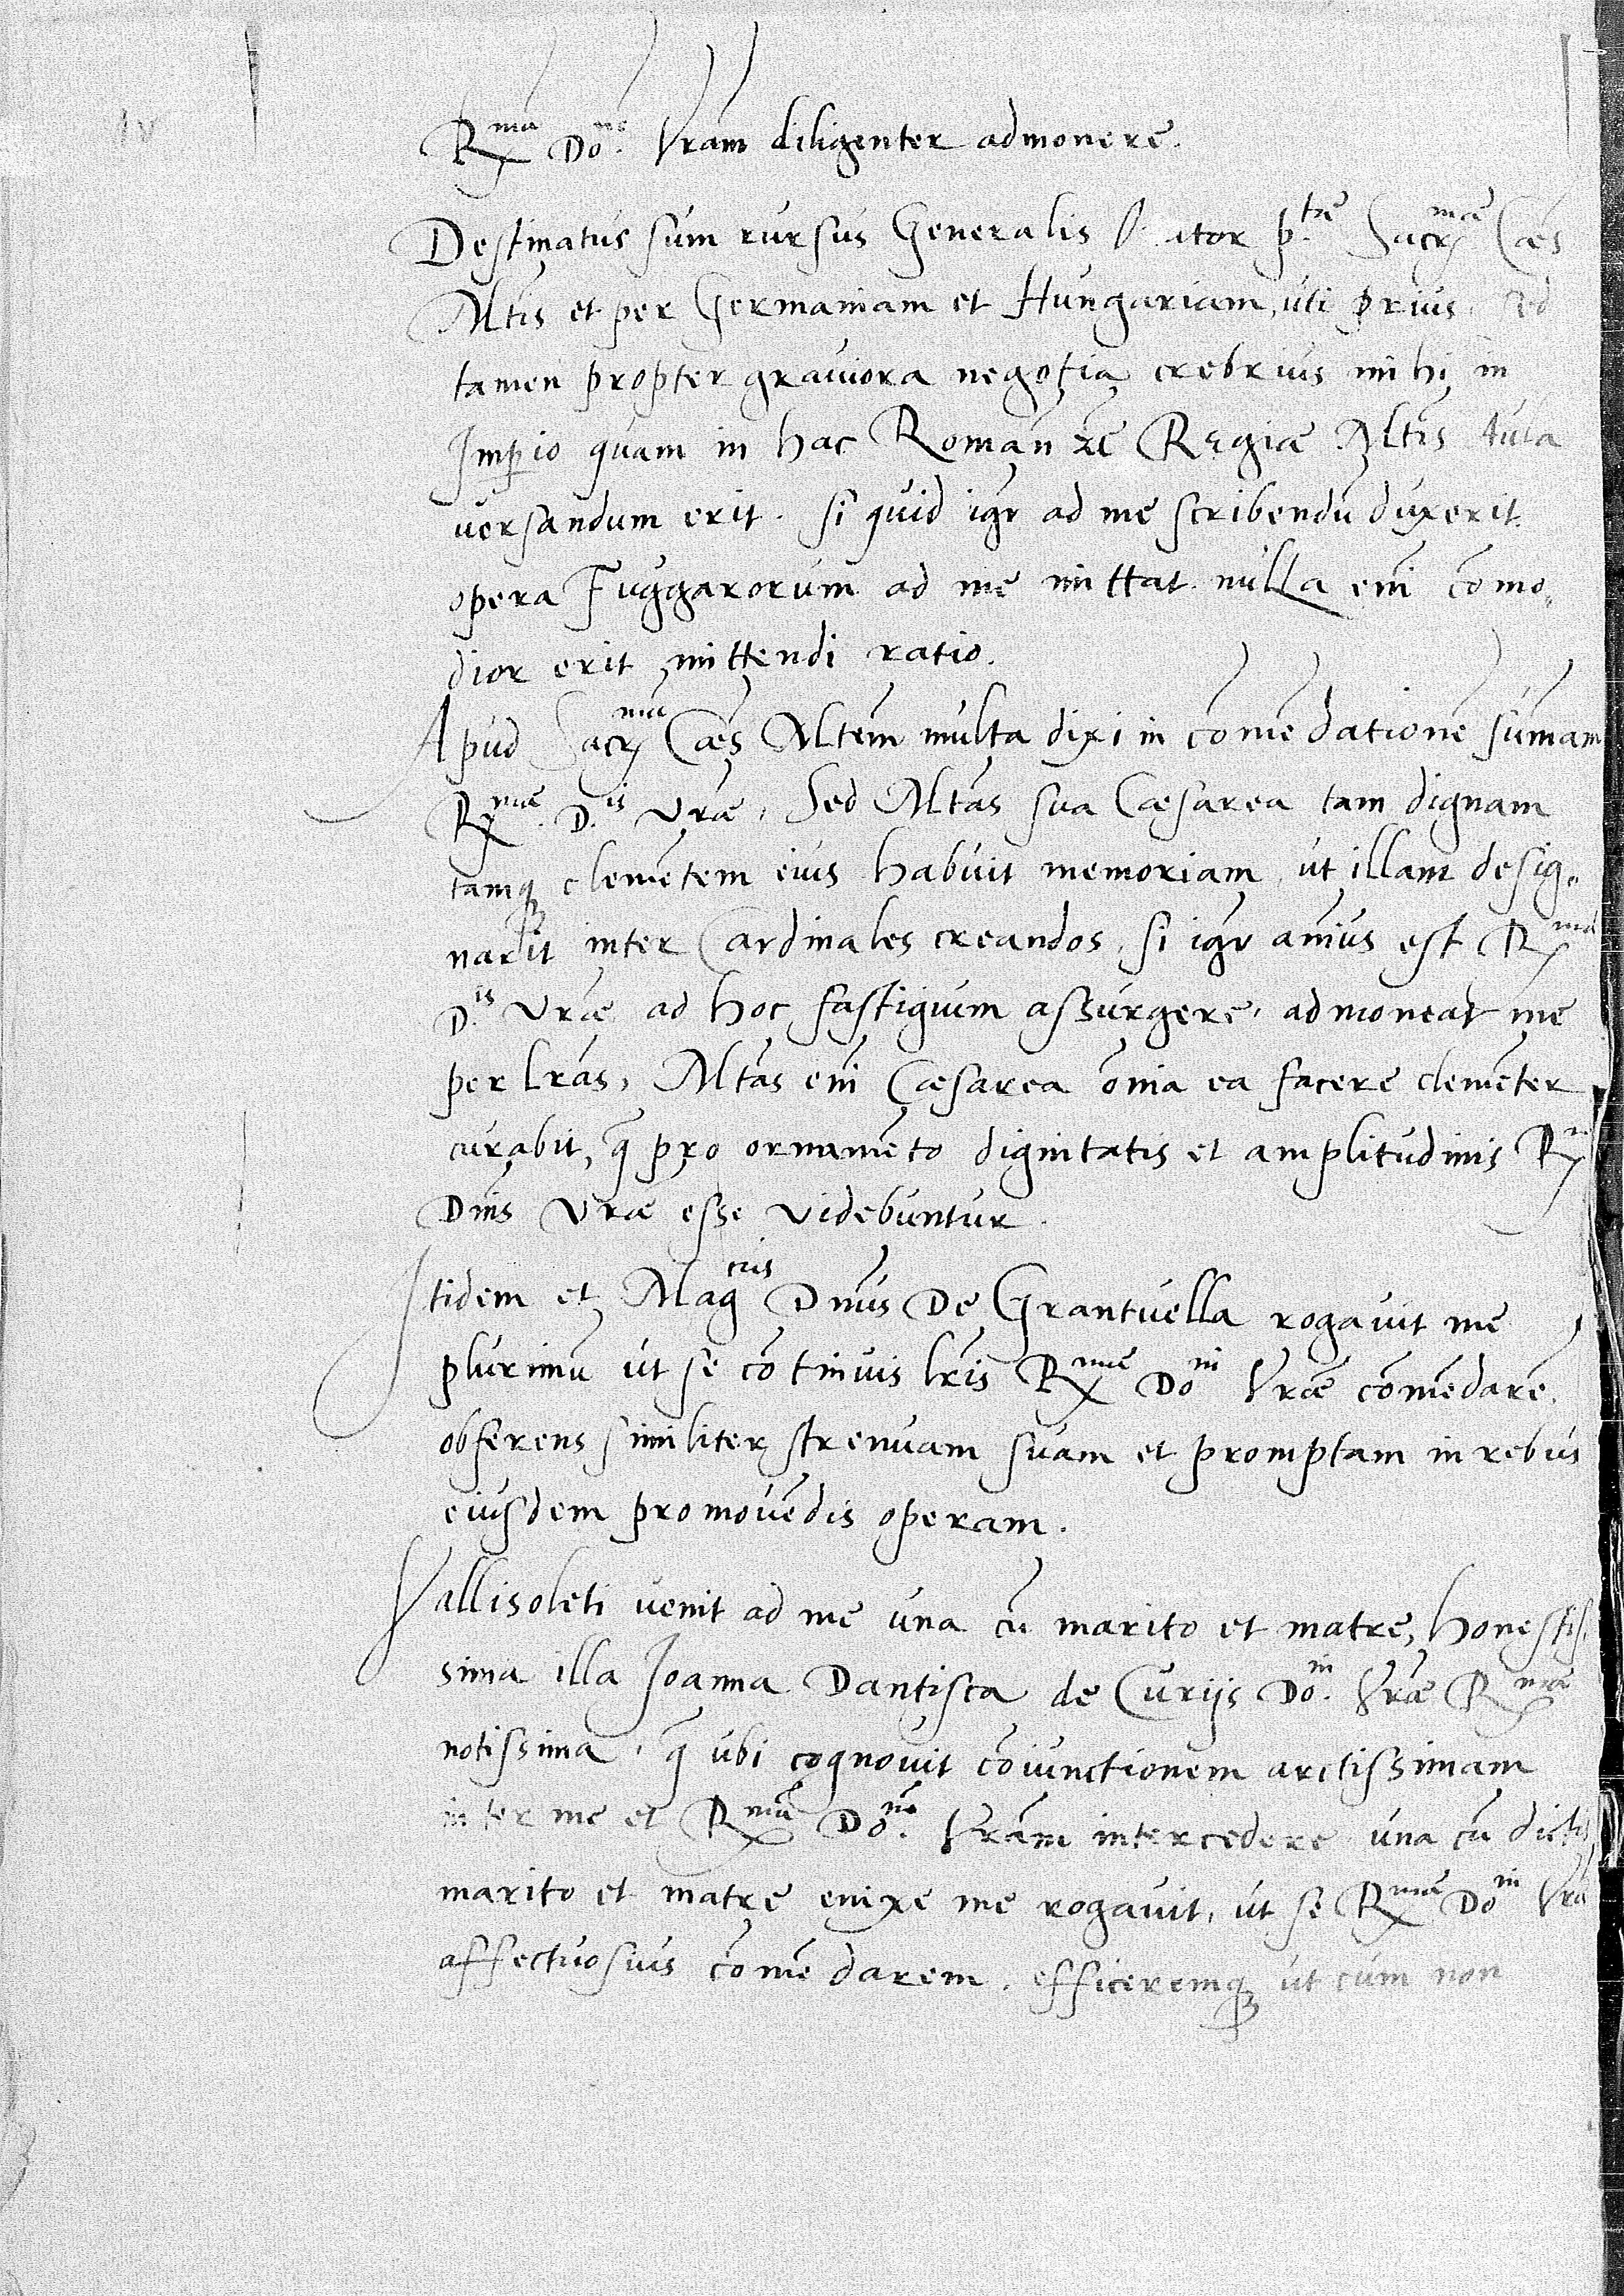 R^mam Do^nem Vram diligenter admonere.
Destinatus sum rursus Generalis Orator p^tae Sacr^mae Caes
Altis et per Germaniam et Hungariam, uti prius, sed
tamen propter graviora negotia crebrius mihi in
Imperio quam in hac Roman Re Regiae Altis Aula
versandum erit. Si quid igr ad me scribendū duxerit
opera Fuggarorum ad me mittat nulla em como,,
dior erit mittendi ratio.
Apud Sacr^mam Caes Altem multa dixi in comēdationē sumam
R^mae. D.is Vrae, Sed Altas sua Caesarea tam dignam
tamq clemētem eius habuit memoriam, ut illam desig,,
narit inter Cardinales creandos, si igr anius est R^mae
D.is Vrae ad hoc fastigium assurgere, admoneat me
per lras, Altas em Caesarea oīa ea facere clemēter
curabit, q pro ornamēto dignitatis et amplitudinis R^mae
Dnis Vrae esse videbuntur.
Itidem et Mag^cus Dnus De Grantvella rogavit me
plurimū ut se cōtinuis lris R^mae Do^ni Vrae comēdarē,
obferens similiter strenuam suam et promptam in rebus
eiusdem promovēdis operam.
Vallisoleti venit ad me una cū marito et matre, honestis,
sima illa Joanna Dantisca de Curijs Do^ni. Vrae R^mae
notissima, q ubi cognovit coīunctionem arctissimam
inter me et R^mam Do^nem. Vram intercedere, una cū dictis
marito et matre enixe me rogavit, ut se R^mae Do^ni Vrae
affectuosius comēdarem, efficeremq ut cum non